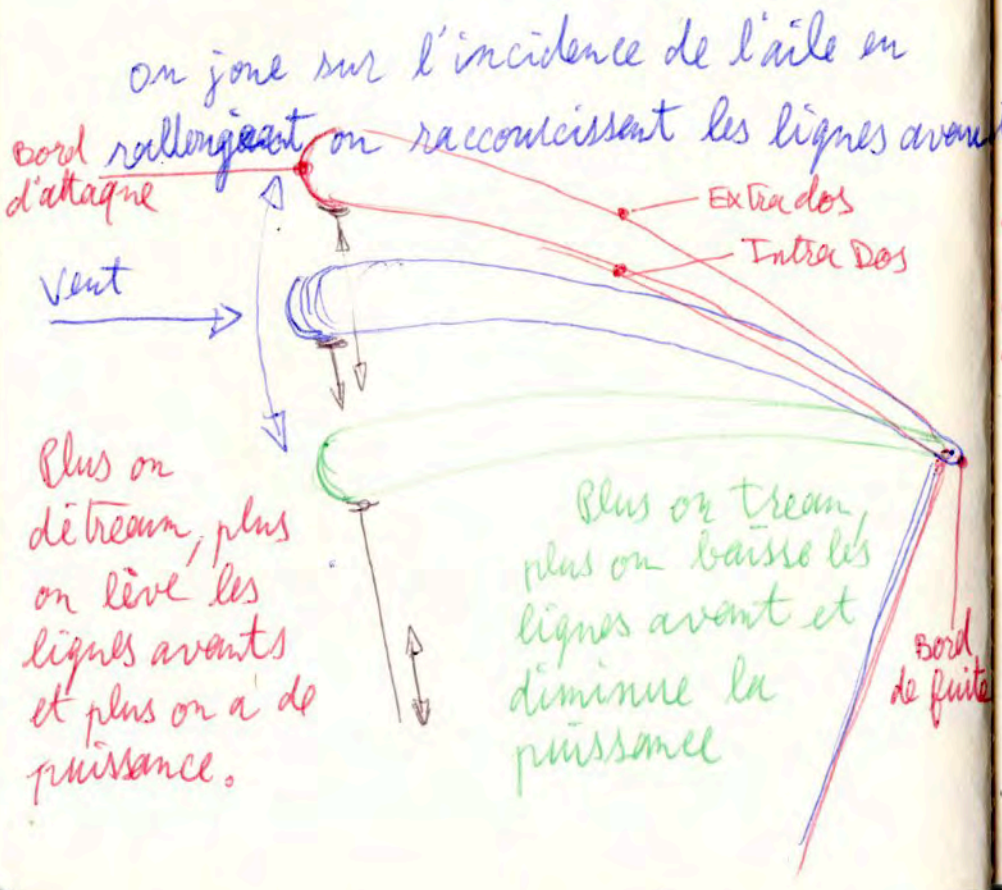 on joue sur l'incidence de l'aile en
rallongeant ou raccourcissant les lignes avant
Bord
d'attaque
Extrados
Intra Dos
Vent
Plus on
détreaum, plus
on lève les
lignes avants
et plus on a de
puissance.
Plus on tream,
plus on baisse les
lignes avant et
diminue la
puissance
Bord
de fuite